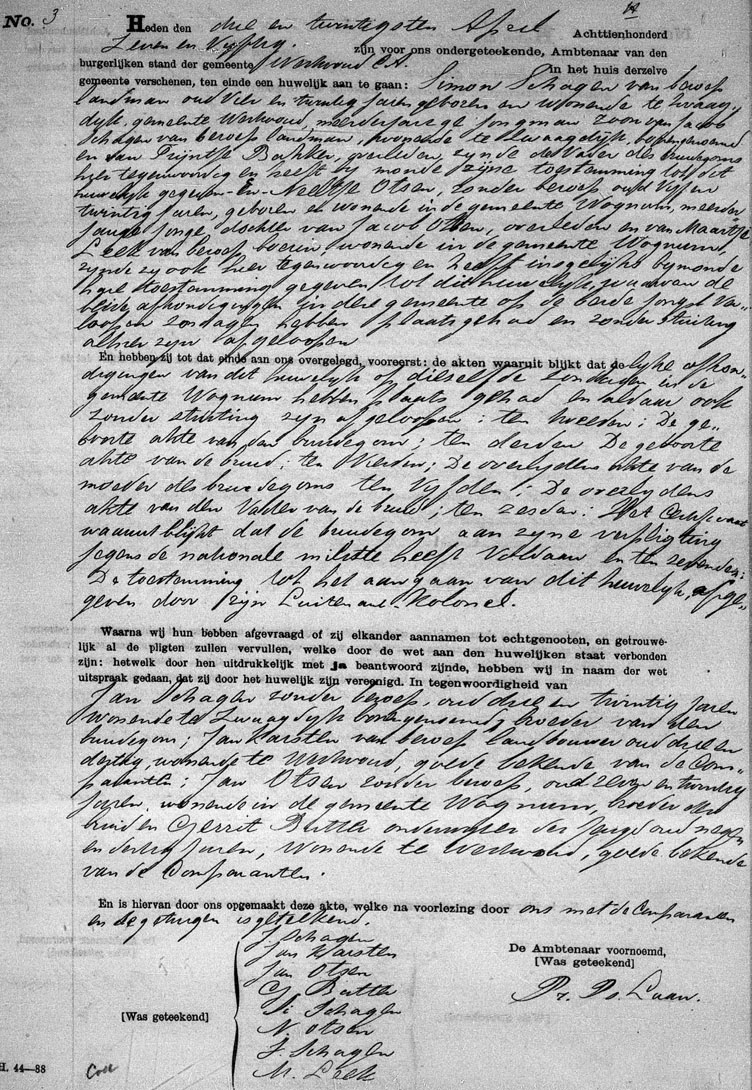 No. 3
Heden den drie en twintigsten April Achttienhonderd
Zeven en Vijftig. zijn voor ons ondergeteekende, Ambtenaar van den
burgerlijken stand der gemeente Werkwoud C.A. in het huis derzelve
gemeente verschenen, ten einde een huwelijk aan te gaan: Simon Schagen van beroep
landman oud Vier en twintig jaren geboren en wonende te Zwaag-
dijk, gemeente Werkwoud, meerderjarige jongman zoon van Jacob
Schagen van beroep landman, wonende te Zwaagdijk, bovengenoemd
en van Trijntje Bakker, overleden, zynde de Vader des bruidegoms
hier tegenwoordig en heeft by monde zyne toestemming tot dit
huwelijk gegeven - En - Neeltje Otsen, zonder beroep oud Vyf en
twintig jaren, geboren en wonende in de gemeente Wognum, meerder
jarige jonge dochter van Jacob Otsen, overleden en van Maartje
Leek van beroep boerin, wonende in de gemeente Wognum,
zynde zy ook hier tegenwoordig en heeft insgelijks bymonde
hare toestemming gegeven tot dit huwelyk, waarvan de
beide afkondigingen in deze gemeente op de beide jongst ver-
loopen zondagen hebben plaats gehad en zonder stuiting
alhier zijn afgeloopen
En hebben zij tot dat einde aan ons overgelegd, vooreerst: de akten waaruit blijkt dat de lyke afkon-
digingen van dit huwelijk op dieselfde zondagen in de
gemeente Wognum hebben plaats gehad en aldaar ook
zonder stuiting zyn afgeloopen: ten tweeden: De ge-
boorte akte van den bruidegom; ten derden De geboorte
akte van de bruid; ten Vierden; De overlydens akte van de
moeder des bruidegoms ten Vyfden: De overlydens
akte van den Vader van de bruid; ten zesden: Het Certificaat
waaruit blijkt dat de bruidegom aan zyne verpligting
jegens de nationale militie heeft Voldaan en ten zevenden:
De toestemming tot het aangaan van dit huwelyk, afge-
geven door zijn Luitenant-Kolonel.
Waarna wij hun hebben afgevraagd of zij elkander aannamen tot echtgenooten, en getrouwe-
lijk al de pligten zullen vervullen, welke door de wet aan den huwelijken staat verbonden
zijn: hetwelk door hen uitdrukkelijk met ja beantwoord zijnde, hebben wij in naam der wet
uitspraak gedaan, dat zij door het huwelijk zijn vereenigd. In tegenwoordigheid van
Jan Schagen zonder beroep, oud drie en twintig jaren
wonende te Zwaagdyk bovengenoemd, broeder van den
bruidegom; Jan Karsten van beroep landbouwer oud drie en
dertig, wonende te Werkwoud, goede bekende van de Com-
paranten; Jan Otsen zonder beroep, oud zeven en twintig
jaren, wonende in de gemeente Wognum, broeder der
bruid en Gerrit Butter onderwyzer der jeugd oud negen
en dertig jaren, wonende te Werkwoud, goede bekende
van de Comparanten.
En is hiervan door ons opgemaakt deze akte, welke na voorlezing door ons met de Comparanten
en de getuigen is geteekend.
J Schagen
Jan Karsten
Jan Otsen
G Butter
Si Schagen
N. Otsen
J. Schagen
M. Leek
[Was geteekend]
De Ambtenaar voornoemd,
[Was geteekend]
H. 44—88
Coll